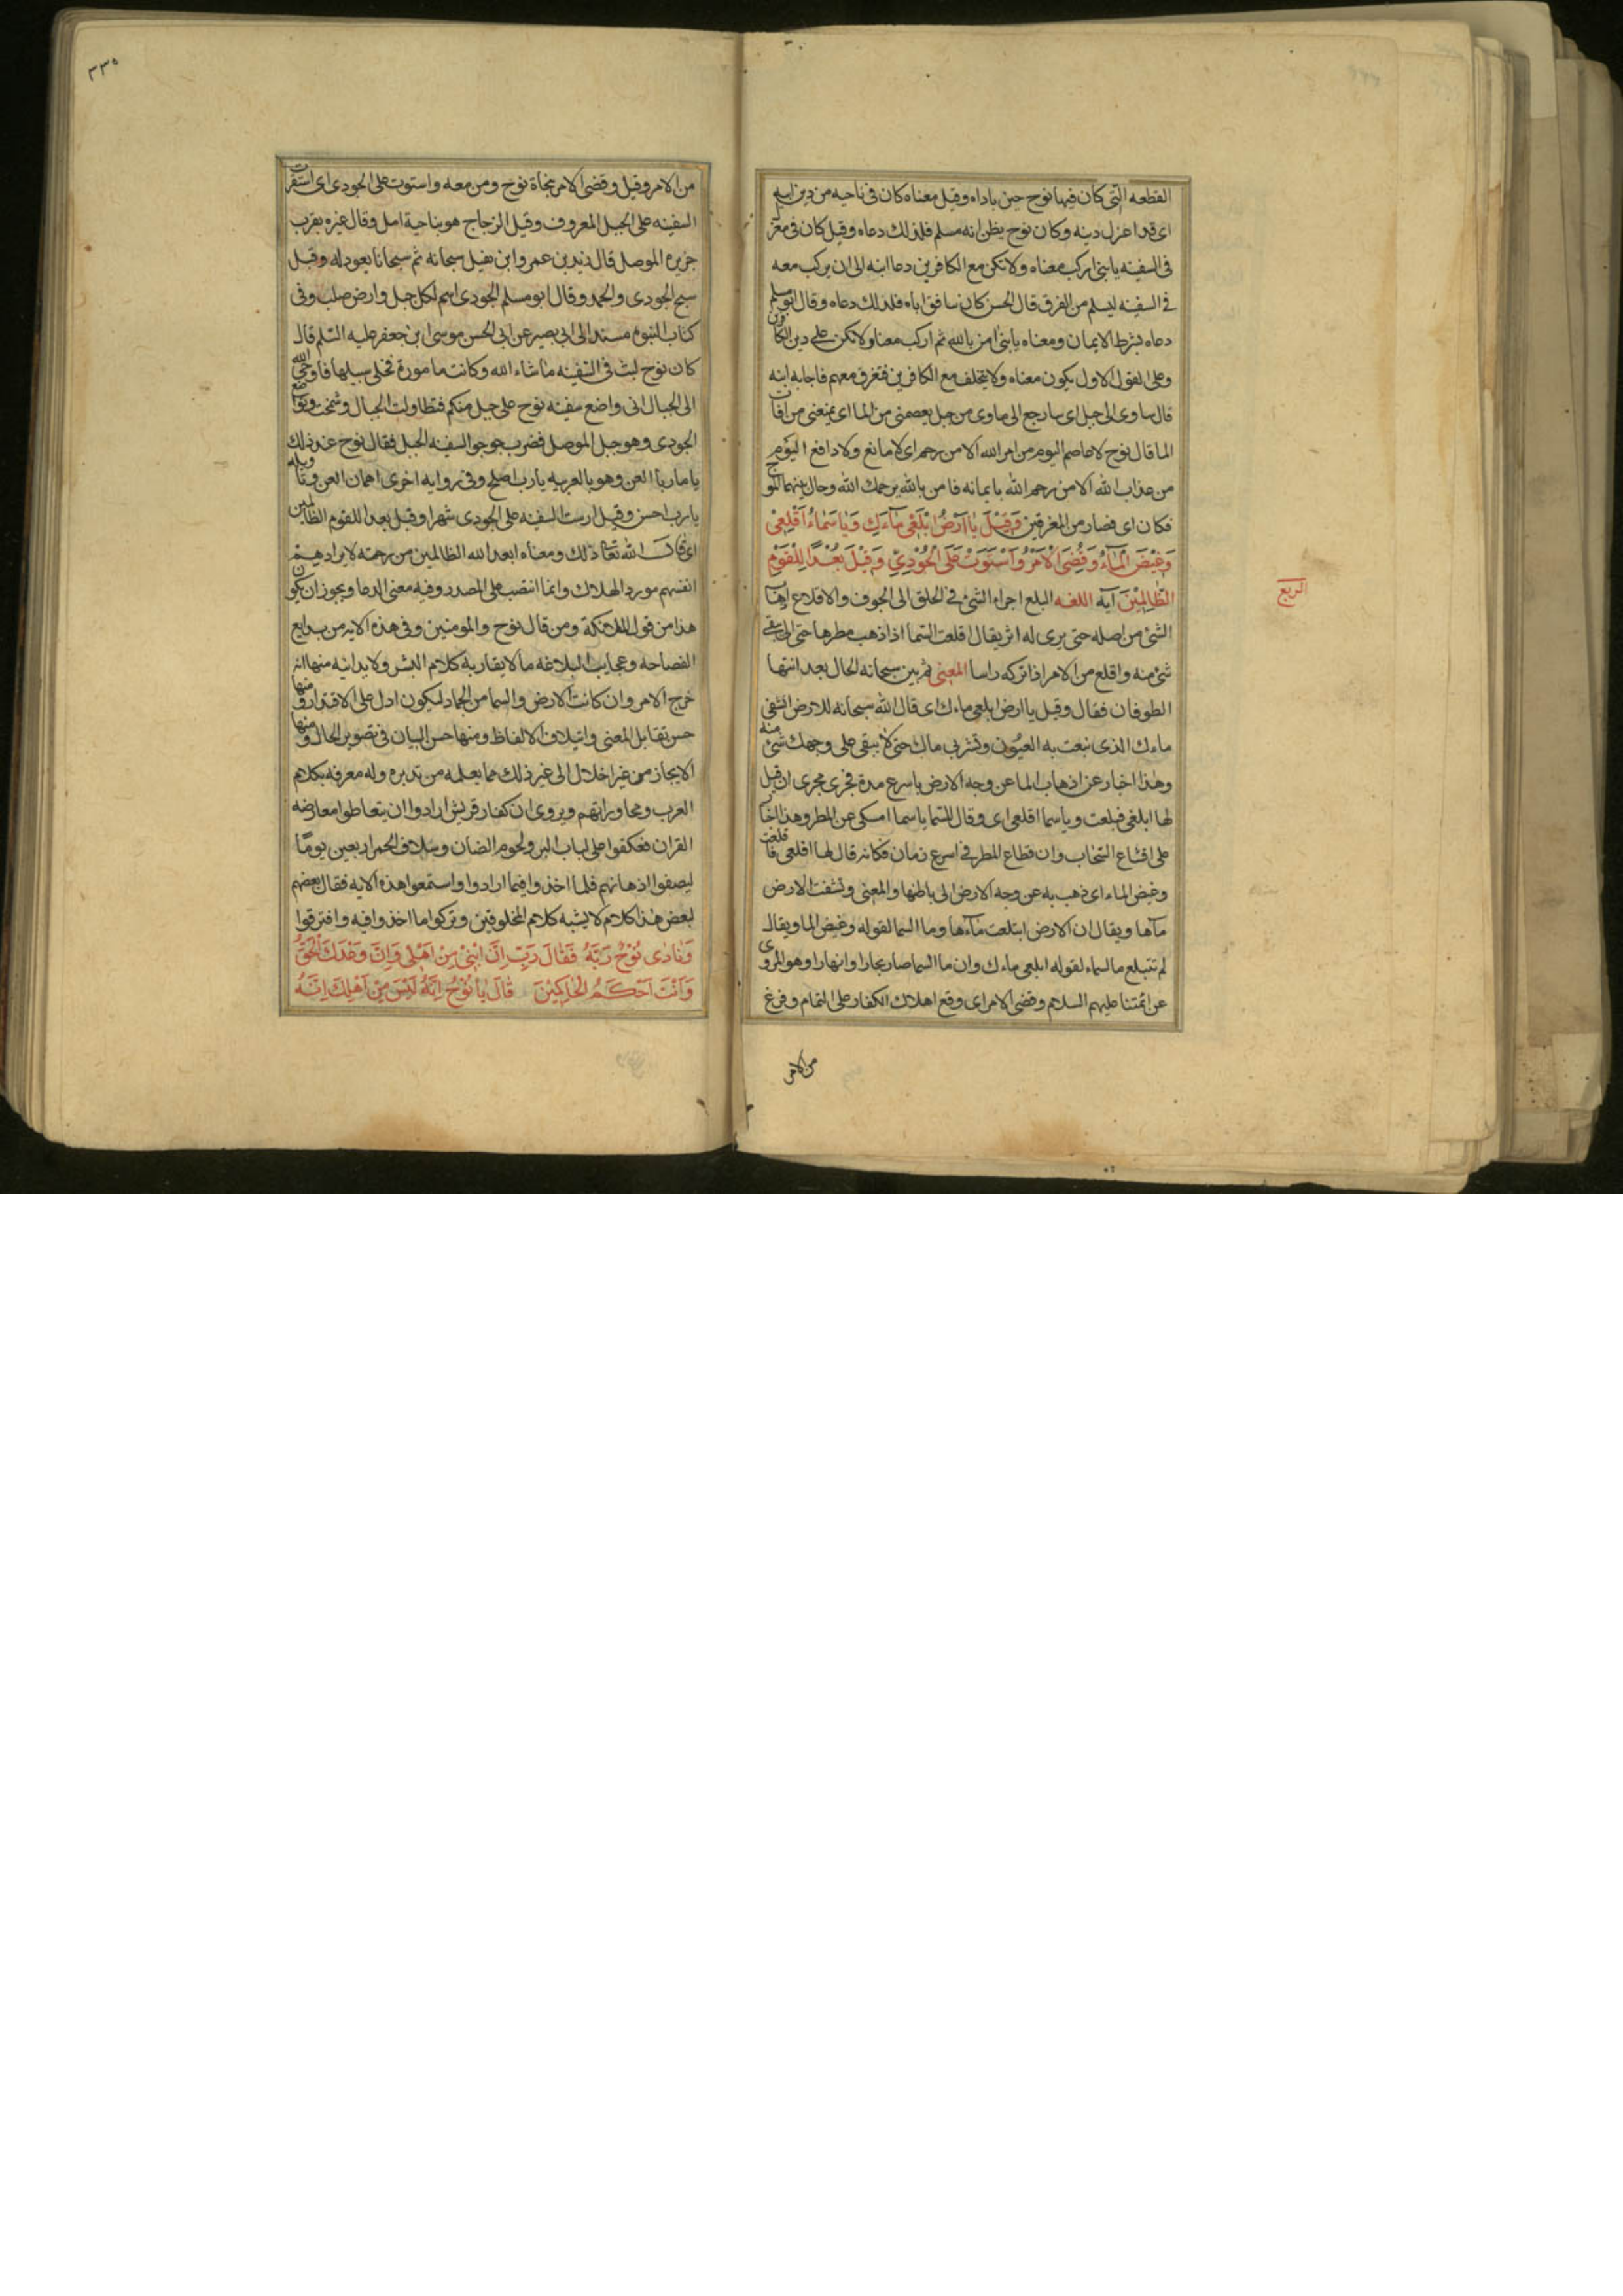 القطعه التى كان فيها نوح حين ناداه وقيل معناه كان فى ناحيه من دين ابيه
اى قد اعزل دينه وكان نوح يظن انه مسلم فلذلك دعاه وقيل كان فى معزل
فى السفينه يا بنى اركب معناه ولا تكن مع الكافرين دعا ابنه الى ان يركب معه
فى السفينه ليسلم من الغرق قال الحسن كان ينافق اباه فلذلك دعاه وقال ابو مسلم
دعاه بشرط الايمان ومعناه يا بنى امن بالله ثم اركب معنا ولا تكن على دين الكافرين
وعلى القول الاول يكون معناه ولا يتخلف مع الكافرين فتغرق معهم فاجابه ابنه
قال ساوى الى جبل اى سارجع الى ماوى من جبل يعصمنى من الما اى يمنعنى من افات
الما قال نوح لا عاصم اليوم من امر الله الا من رحم اى لا مانع ولا دافع اليوم
من عذاب الله الا من رحم الله بايمانه فامن بالله يرحمك الله وحال بينهما الموج
فكان اى فصار من المغرقين وَقِيْلَ يَا اَرْضُ ابْلَعِىْ مَآءَكِ وَيَا سَمَاءُ اَقْلِعِىْ
وَغِيْضَ الْمَاءُ وَقُضِىَ الْاَمْرُ وَاسْتَوَتْ عَلَى الْجُوْدِىِّ وَقِيْلَ بُعْدًا لِلْقَوْمِ
الظَّالِمِيْنَ آيه اللغه البلع اجراء الشىء فى الحلق الى الجوف والاقلاع اذهاب
الشىء من اصله حتى يرى له اثر يقال اقلعت السما اذا ذهب مطرها حتى لا يبقى
شىء منه واقلع من الامر اذا تركه راسا المعنى ثم بين سبحانه الحال بعد انتها
الطوفان فقال وقيل يا ارض ابلعى ماءك اى قال الله سبحانه للارض انشفى
ماءك الذى نبعت به العيون وتشربى ماك حتى لا يبقى على وجهك شىء منه
وهذا اخبار عن اذهاب الما عن وجه الارض باسرع مدة فجرى مجرى ان قيل
لها ابلعى فبلعت ويا سما اقلعى اى وقال للسما يا سما امسكى عن المطر وهذا اخبار
على اقشاع السحاب وانقطاع المطر فى اسرع زمان فكانه قال لها اقلعى فاقلعت
وغيض الماء اى ذهب به عن وجه الارض الى باطنها والمعنى ونشفت الارض
مآها ويقال ان الارض ابتلعت مآءها وما السما لقوله وغيض الما ويقال
لم تبتلع ما السماء لقوله ابلعى ماءك وان ما السما صار بحارا وانهارا وهو المروى
عن ائمتنا عليهم السلام وقضى الامر اى وقع اهلاك الكفار على التمام وفرغ
من الامر
الربع
٣٣٥
من الامر وقيل وقضى الامر بنجاة نوح ومن معه واستوت على الجودى اى استقرت
السفينه على الجبل المعروف وقيل الزجاج هو بناحية امل وقال غيره بقرب
جزيره الموصل قال زيد بن عمرو ابن نفيل سبحانه ثم سبحانا يعود له وقبل
سبح الجودى والحمد وقال ابو مسلم الجودى اسم لكل جبل وارض صلب وفى
كتاب النبوه مسندا الى ابى بصير عن ابى الحسن موسى ابن جعفر عليه السّلم قال
كان نوح لبث فى السفينه ما شاء الله وكانت مامورة فخلى سبيلها فاوحى الله
الى الجبال انى واضع سفينه نوح على جبل منكم فتطاولت الجبال وشمخت وتواضع
الجودى وهو جبل الموصل فضرب جوجو السفينه الجبل فقال نوح عند ذلك
يا ماريا العن وهو بالعربيه يا رب اصلح وفى روايه اخرى اهمان العن وتاويله
يا رب احسن وقيل ارست السفينه على الجودى شهرا وقيل بعدا للقوم الظالمين
اى قال الله تعا ذلك ومعناه ابعد الله الظالمين من رحمته لايرادهم
انفسهم مورد الهلاك وانما انتصب على المصدر وفيه معنى الدعا ويجوز ان يكون
هذا من قول الملائكة ومن قال نوح والمومنين وفى هذه الايه من بدايع
الفصاحه وعجايب البلاغه ما لا يقاربه كلام البشر ولا يدانيه منها انه
خرج الامر وان كانت الارض والسما من الجماد ليكون ادل على الاقتدار ومنها
حسن تقابل المعنى وايتلاف الالفاظ ومنها حسن البيان فى تصوير الحال ومنها
الايجاز من غير اخلال الى غير ذلك مما يعلمه من تدبره وله معرفه بكلام
العرب ومحاوراتهم ويروى ان كفار قريش ارادوا ان يتعاطوا معارضه
القران فعكفوا على لباب البر ولحوم الضان وسلاف الخمر اربعين يومًا
ليصفوا اذهانهم فلما اخذوا فيما ارادوا واستمعوا هذه الايه فقال بعضهم
لبعض هذا كلام لا يشبه كلام المخلوقين وتركوا ما اخذوا فيه وافترقوا
وَنَادٰى نُوْحٌ رَبَّهُ فَقَالَ رَبِّ اِنَّ ابْنِىْ مِنْ اَهْلِىْ وَاِنَّ وَعْدَكَ الْحَقُّ
وَاَنْتَ اَحْكَمُ الْحَاكِمِيْنَ قَالَ يَا نُوْحُ اِنَّهُ لَيْسَ مِنْ اَهْلِكَ اِنَّهُ